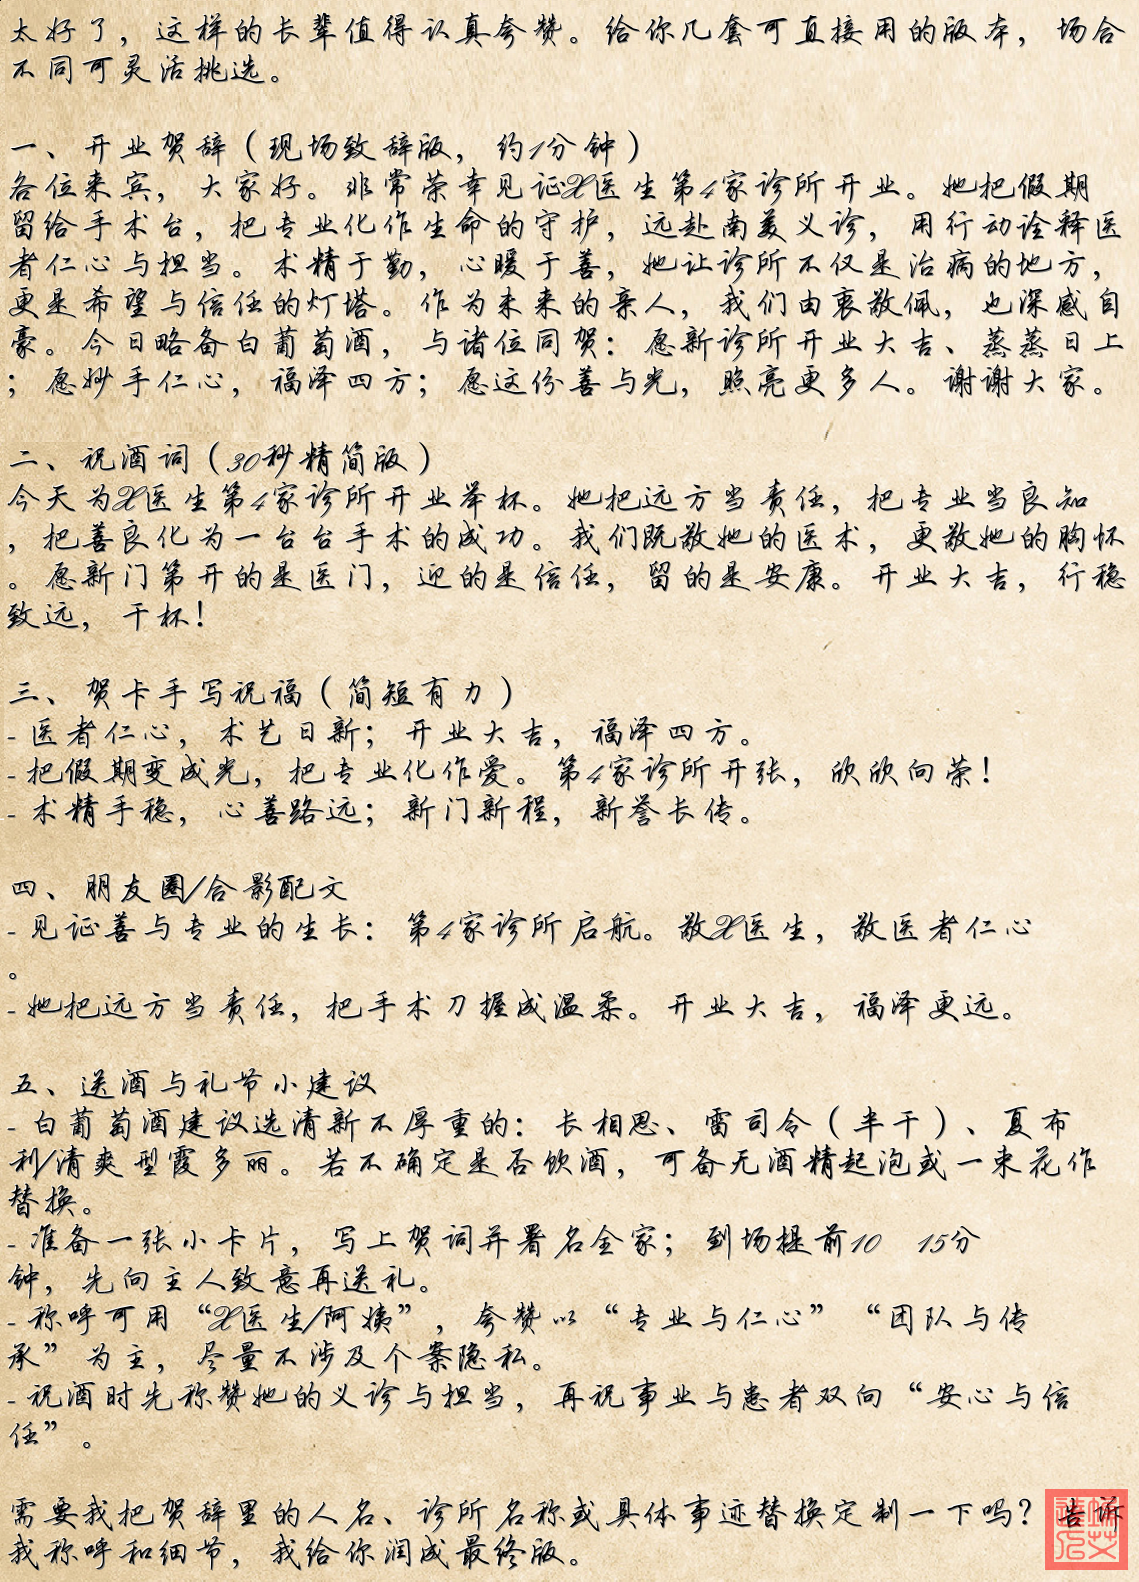 太好了，这样的长辈值得认真夸赞。给你几套可直接用的版本，场合
不同可灵活挑选。
一、开业贺辞（现场致辞版，约1分钟）
各位来宾，大家好。非常荣幸见证X医生第4家诊所开业。她把假期
留给手术台，把专业化作生命的守护，远赴南美义诊，用行动诠释医
者仁心与担当。术精于勤，心暖于善，她让诊所不仅是治病的地方，
更是希望与信任的灯塔。作为未来的亲人，我们由衷敬佩，也深感自
豪。今日略备白葡萄酒，与诸位同贺：愿新诊所开业大吉、蒸蒸日上
；愿妙手仁心，福泽四方；愿这份善与光，照亮更多人。谢谢大家。
二、祝酒词（30秒精简版）
今天为X医生第4家诊所开业举杯。她把远方当责任，把专业当良知
，把善良化为一台台手术的成功。我们既敬她的医术，更敬她的胸怀
。愿新门第开的是医门，迎的是信任，留的是安康。开业大吉，行稳
致远，干杯！
三、贺卡手写祝福（简短有力）
- 医者仁心，术艺日新；开业大吉，福泽四方。
- 把假期变成光，把专业化作爱。第4家诊所开张，欣欣向荣！
- 术精手稳，心善路远；新门新程，新誉长传。
四、朋友圈/合影配文
- 见证善与专业的生长：第4家诊所启航。敬X医生，敬医者仁心
。
- 她把远方当责任，把手术刀握成温柔。开业大吉，福泽更远。
五、送酒与礼节小建议
- 白葡萄酒建议选清新不厚重的：长相思、雷司令（半干）、夏布
利/清爽型霞多丽。若不确定是否饮酒，可备无酒精起泡或一束花作
替换。
- 准备一张小卡片，写上贺词并署名全家；到场提前10 15分
钟，先向主人致意再送礼。
- 称呼可用“X医生/阿姨”，夸赞以“专业与仁心”“团队与传
承”为主，尽量不涉及个案隐私。
- 祝酒时先称赞她的义诊与担当，再祝事业与患者双向“安心与信
任”。
需要我把贺辞里的人名、诊所名称或具体事迹替换定制一下吗？告诉
我称呼和细节，我给你润成最终版。